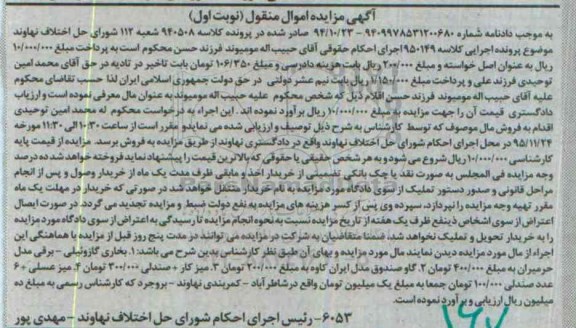 آگهی مزایده اموال منقول (نوبت اول)
به موجب دادنامه شماره ۹۴۰۹۹۷۸۵۳۱۲۰۰۶۸۰ - ۹۴/۱۰/۲۳ صادر شده در پرونده کلاسه ۹۴۰۵۰۸ شعبه ۱۱۲ شورای حل اختلاف نهاوند
موضوع پرونده اجرایی کلاسه ۹۵۰۱۴۹ اجرای احکام حقوقی آقای حبیب اله مومیوند فرزند حسن محکوم است به پرداخت مبلغ ۱۰/۰۰۰/۰۰۰
ریال به عنوان اصل خواسته و مبلغ ۲۰۰/۰۰۰ ریال بابت هزینه دادرسی و مبلغ ۱۰۶/۳۵۰ تومان بابت تاخیر در تادیه در حق آقای محمد امین
توحیدی فرزند علی و پرداخت مبلغ ۱/۱۵۰/۰۰۰ ریال بابت نیم عشر دولتی در حق دولت جمهوری اسلامی ایران لذا حسب تقاضای محکوم
علیه آقای حبیب اله مومیوند فرزند حسن اقلام ذیل که شخص محکوم علیه حبیب اله مومیوند به عنوان مال معرفی نموده است و ارزیاب
دادگستری قیمت آن را جهت مزایده به مبلغ ۱۰/۰۰۰/۰۰۰ ریال برآورد نموده اند. این اجراء به درخواست محکوم له محمد امین توحیدی
اقدام به فروش مال موصوف که توسط کارشناس به شرح ذیل توصیف و ارزیابی شده می نماید و مقرر است از ساعت ۱۰:۳۰ الی ۱۱:۳۰ مورخه
۹۵/۱۱/۲۴ در محل اجرای احکام شورای حل اختلاف نهاوند واقع در دادگستری نهاوند از طریق مزایده به فروش برسد. مزایده از قیمت پایه
کارشناسی ۱۰/۰۰۰/۰۰۰ ریال شروع می شود و به هر شخص حقیقی یا حقوقی که بالاترین قیمت را پیشنهاد نماید فروخته خواهد شد ده درصد
وجه مزایده فی المجلس به صورت نقد یا چک بانکی تضمینی از خریدار اخذ و مابقی ظرف مدت یک ماه از خریدار وصول و پس از انجام
مراحل قانونی و صدور دستور تملیک از سوی دادگاه مورد مزایده به نام خریدار منتقل خواهد شد در صورتی که خریدار در مهلت یک ماه
مقرر تهیه وجه مزایده را نپردازد، سپرده وی پس از کسر هزینه های مزایده به نفع دولت ضبط و مزایده تجدید می گردد. در صورت ایصال
اعتراض از سوی اشخاص ذینفع ظرف یک هفته از تاریخ مزایده نسبت به نحوه انجام مزایده تا رسیدگی به اعتراض از سوی دادگاه مورد مزایده
را به خریدار تحویل و تملیک نخواهد شد. ضمنا متقاضیان به شرکت در مزایده می توانند در مدت پنج روز قبل از مزایده با هماهنگی این
اجراء از مال مورد مزایده دیدن نمایند مال مورد مزایده و بهای آن طبق نظر کارشناس بدین شرح می باشد: ۱. بخاری گازوئیلی - برقی مدل
حرمیران به مبلغ ۴۰۰/۰۰۰ تومان ۲. گاو صندوق مدل ایران کاوه به مبلغ ۲۰۰/۰۰۰ تومان ۳. میز کار + صندلی ۳۰۰/۰۰۰ تومان ۴. میز عسلی + ۶
عدد صندلی ۱۰۰/۰۰۰ تومان جمعا به مبلغ یک میلیون تومان واقع در شاطر آباد - کمربندی نهاوند - بروجرد که کارشناس رسمی به مبلغ ده
میلیون ریال ارزیابی و برآورد نموده است.
۶۰۵۳- رئیس اجرای احکام شورای حل اختلاف نهاوند - مهدی پور